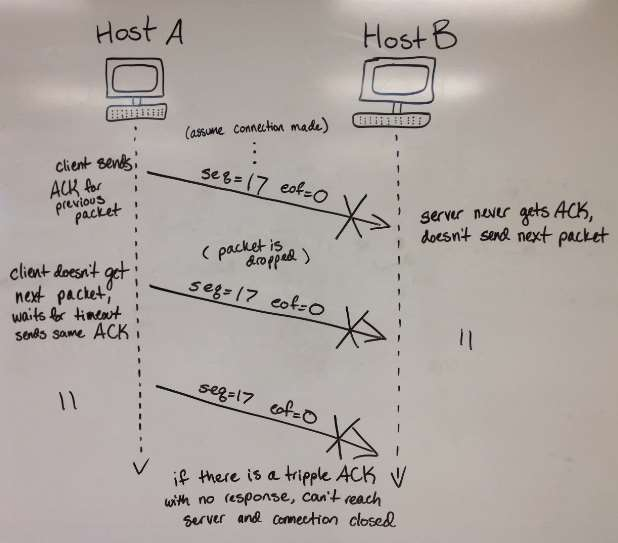 Host A
Host B
(assume connection made)
client sends
ACK for
previous
packet
seq=17 eof=0
server never gets ACK,
doesn't send next packet
(packet is
dropped)
client doesn't get
next packet,
waits for timeout
sends same ACK
seq=17 eof=0
"
"
seq=17 eof=0
if there is a tripple ACK
with no response, can't reach
server and connection closed